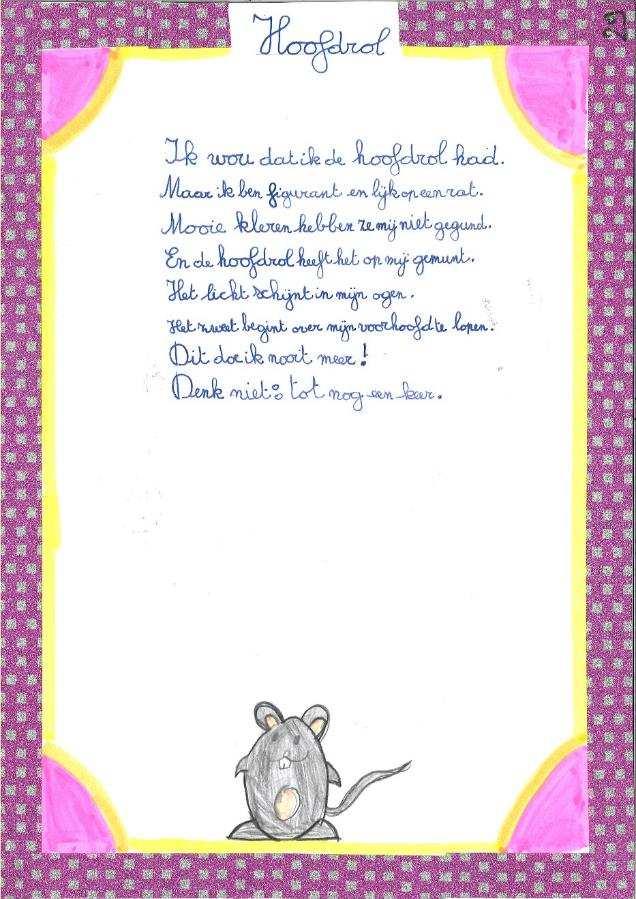 29
Hoofdrol
Ik wou dat ik de hoofdrol had.
Maar ik ben figurant en lijk op een rat.
Mooie kleren hebben ze mij niet gegund.
En de hoofdrol heeft het op mij gemunt.
Het licht schijnt in mijn ogen.
Het zweet begint over mijn voorhoofd te lopen.
Dit doe ik nooit meer!
Denk niet: tot nog een keer.